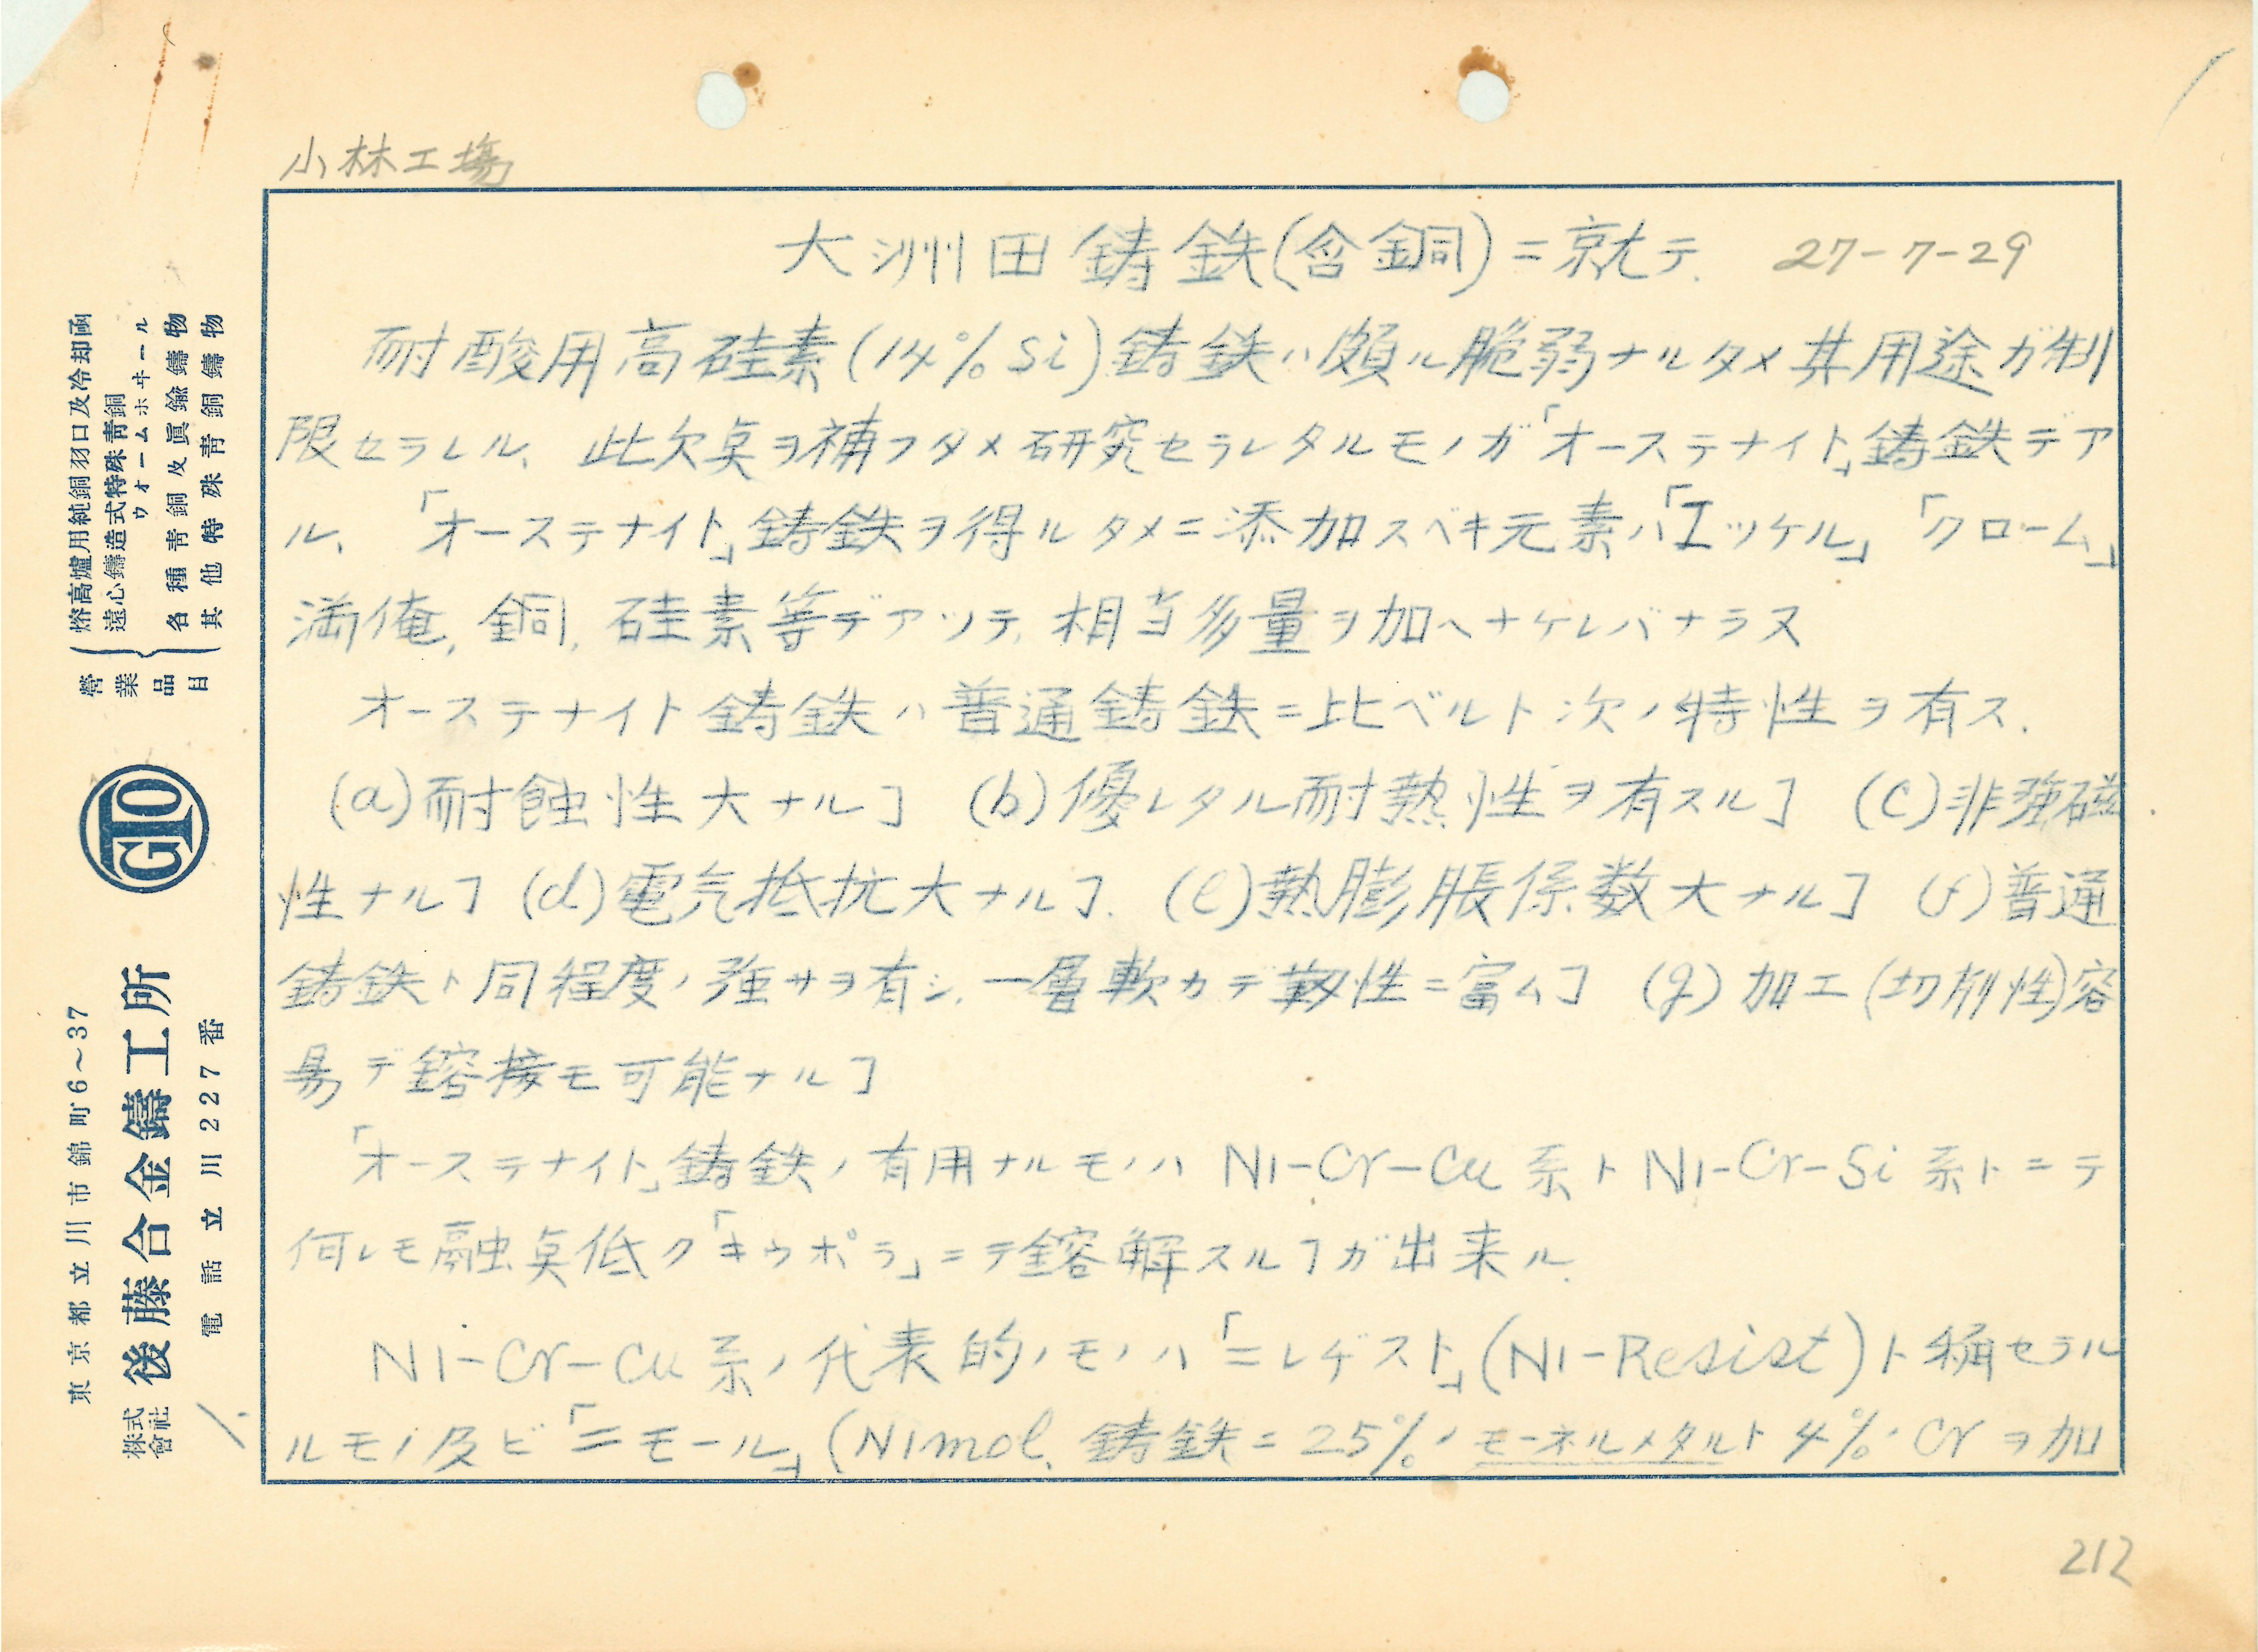 小林工場
大洲田鋳鉄(含銅)ニ就テ. 27-7-29
耐酸用高硅素(14% Si)鋳鉄ハ頗ル脆弱ナルタメ其用途ガ制
限セラレル、此欠点ヲ補フタメ研究セラレタルモノガ「オーステナイト」鋳鉄デア
ル、「オーステナイト」鋳鉄ヲ得ルタメニ添加スベキ元素ハ「ニッケル」「クローム」
満俺, 銅, 硅素等デアツテ, 相当多量ヲ加ヘナケレバナラヌ
オーステナイト鋳鉄ハ普通鋳鉄ニ比ベルト次ノ特性ヲ有ス.
(a)耐蝕性大ナルヿ (b)優レタル耐熱性ヲ有スルヿ (c)非強磁
性ナルヿ (d)電気抵抗大ナルヿ. (e)熱膨脹係数大ナルヿ (f)普通
鋳鉄ト同程度ノ強サヲ有シ, 一層軟カデ靱性ニ富ムヿ (g)加工(切削性)容
易デ鎔接モ可能ナルヿ
「オーステナイト」鋳鉄ノ有用ナルモノハ Ni-Cr-Cu 系ト Ni-Cr-Si 系トニテ
何レモ融点低ク「キウポラ」ニテ鎔解スルヿガ出来ル.
Ni-Cr-Cu 系ノ代表的ノモノハ「ニレヂスト」(Ni-Resist)ト称セラル
ルモノ及ビ「ニモール」(Nimol. 鋳鉄ニ25%ノモーネルメタルト4%ノCrヲ加
212
營業品目
熔高爐用純銅羽口及冷却函
遠心鑄造式特殊青銅ウォームホヰール
各種青銅及眞鍮鑄物
其他特殊青銅鑄物
GTO
東京都立川市錦町6～37
株式會社 後藤合金鑄工所
電話立川227番
1.